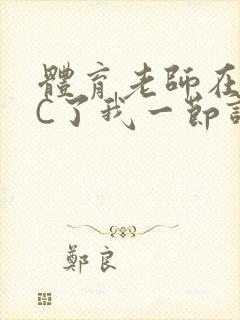 體育老師在
C了我一節
鄭良